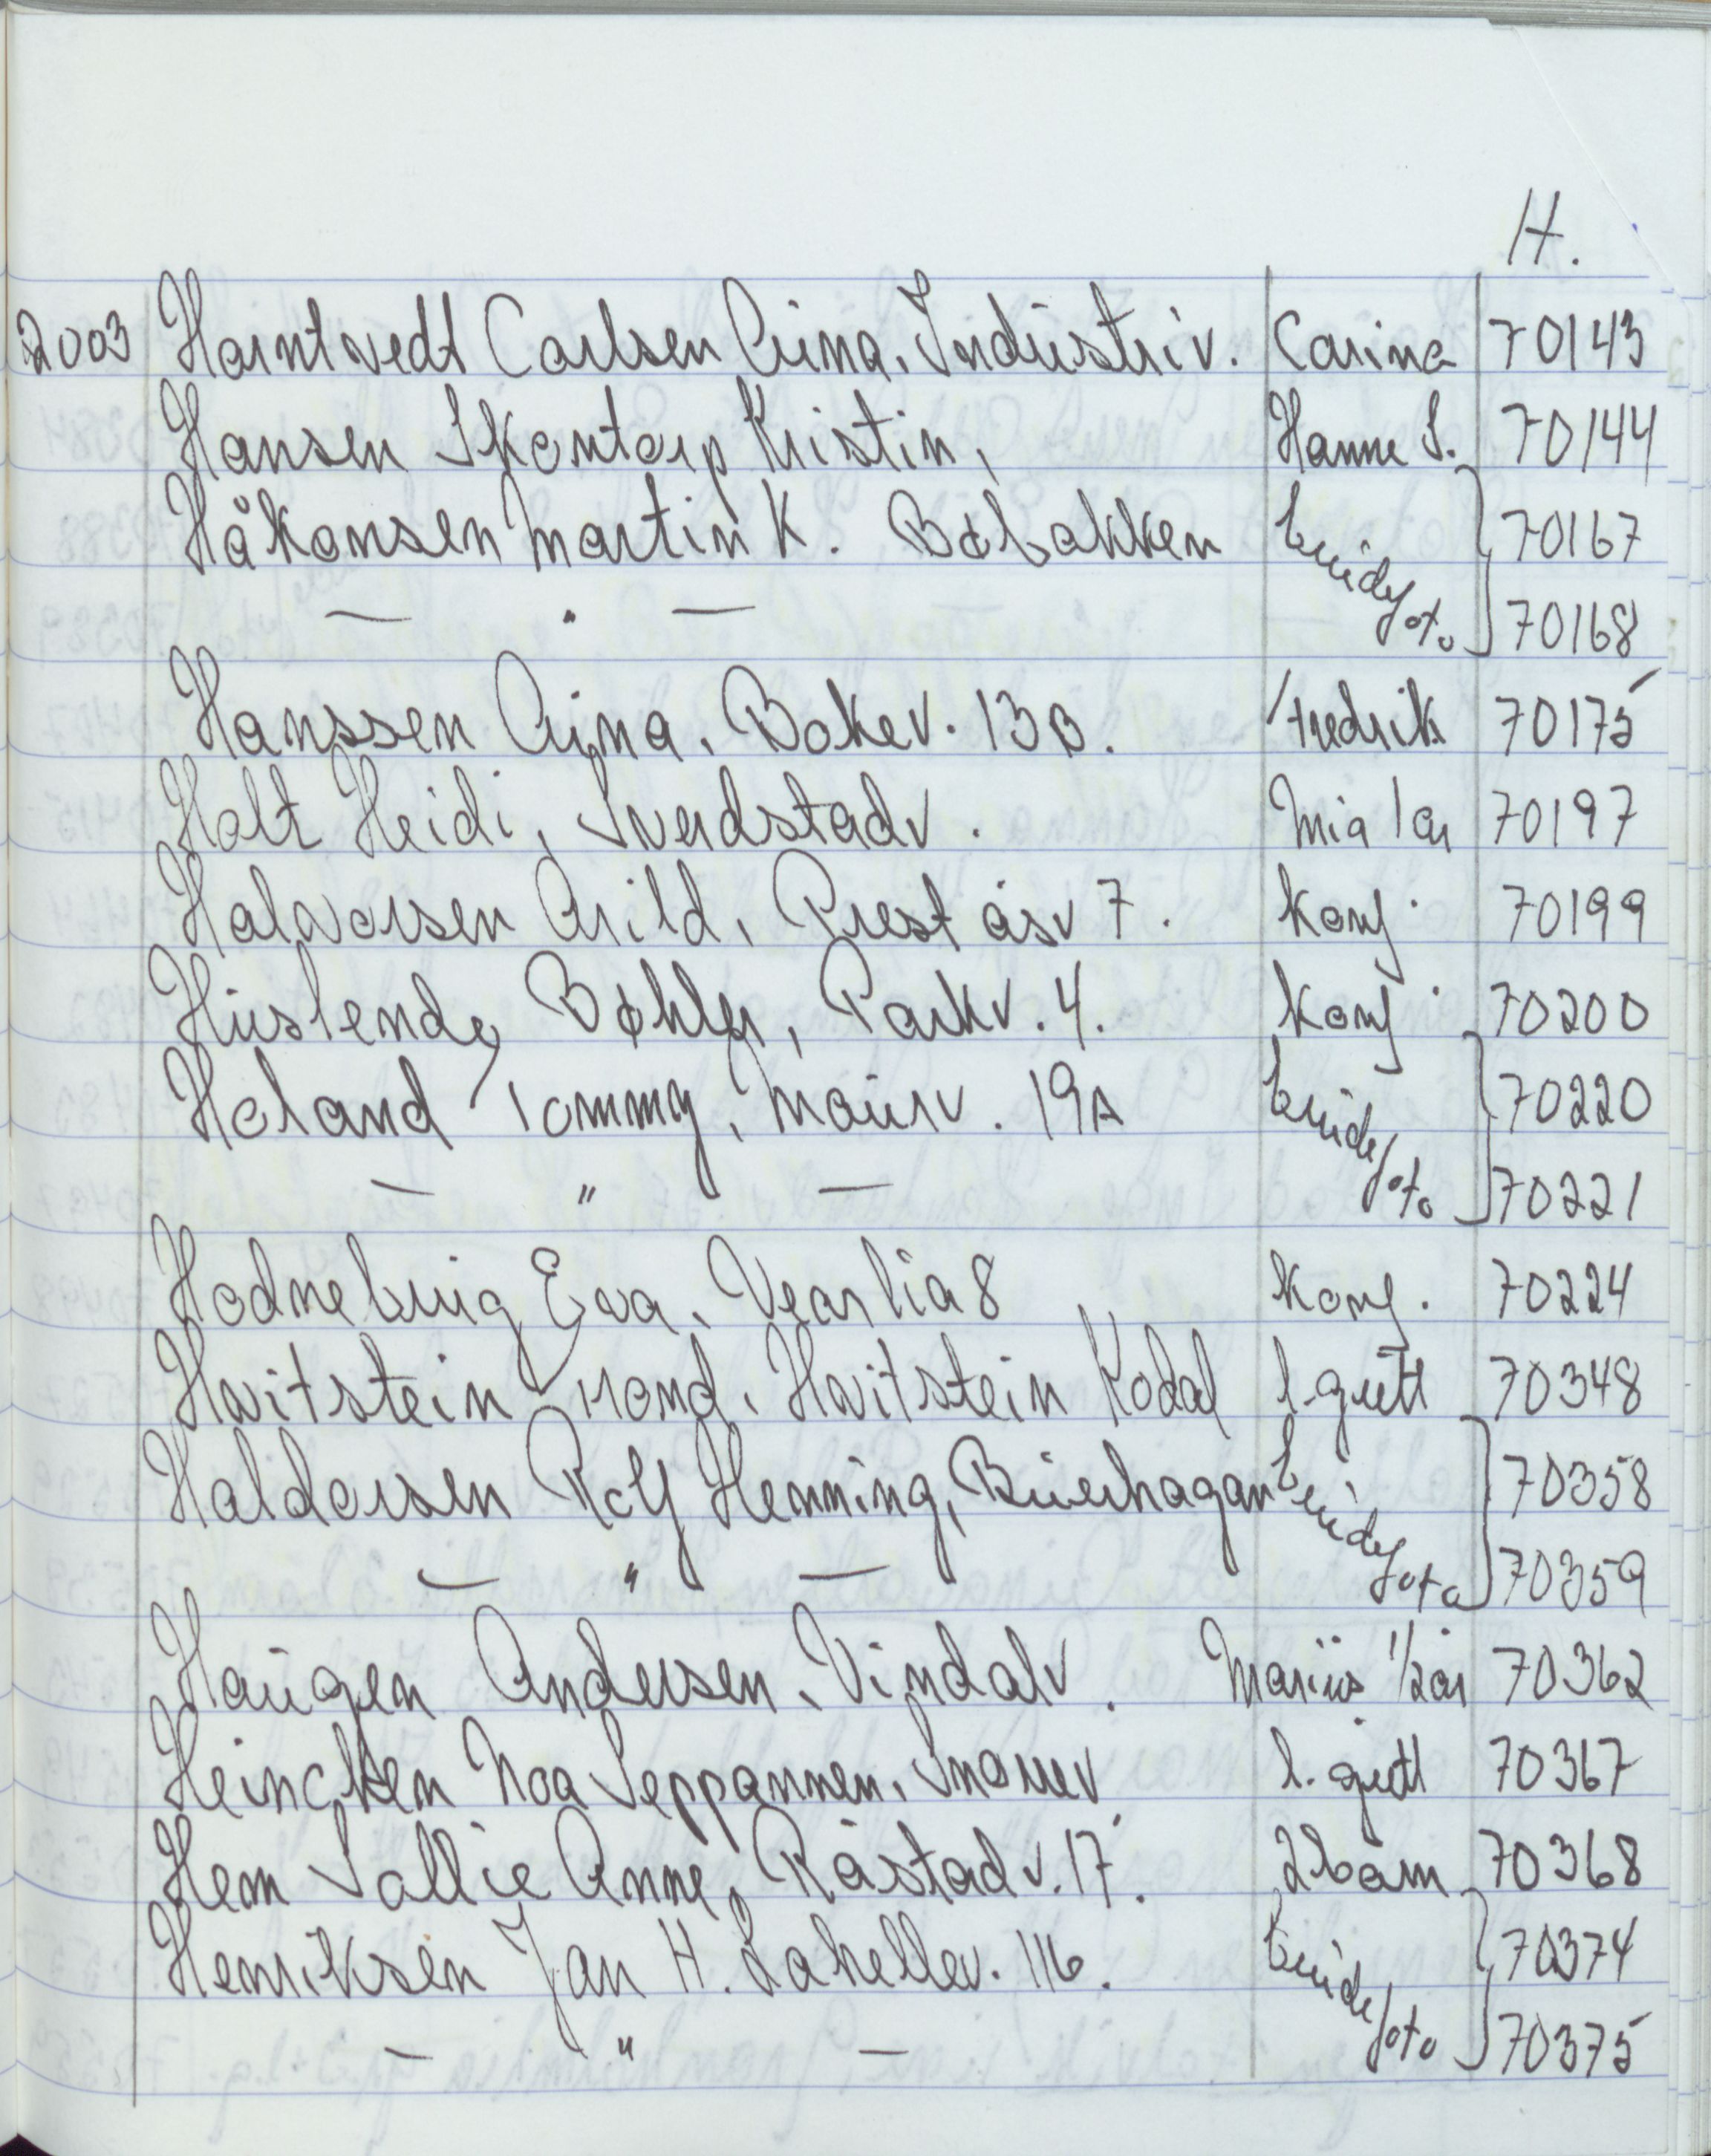 H.
2003 Harntvedt Carlsen Anna. Industriv. Carina 70143
Hansen Skontorp Kristin, Hanne S. 70144
Håkonsen Martin K. Bøbakken brudefoto 70167
— " — 70168
Hanssen Anna. Bokev. 13B. Fredrik 70175
Holt Heidi, Sverdstadv. Mia 1 år 70197
Halvorsen Arild, Preståsv 7. konf. 70199
Huslende Bøhler, Parkv. 4. konf. 70200
Holand Tommy, Maurv. 19A brudefoto 70220
— " — 70221
Hodneburg Eva. Vearlia 8 konf. 70224
Hvitstein Trond. Hvitstein Kodal l. gutt 70348
Haldorsen Rolf Henning, Buerhagan brudefoto 70358
— " — 70359
Haugen Andersen. Vindalv. Marius 1/2 år 70362
Heincken Noa Seppannen. l. gutt 70367
Hem Sallie Anne, Råstadv. 17. 2 barn 70368
Henriksen Jan H. Lahellev. 116. brudefoto 70374
— " — 70375